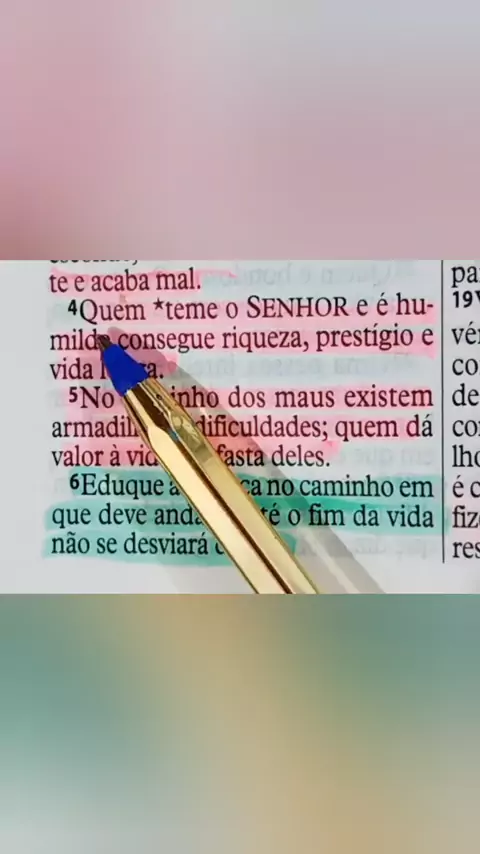 te e acaba mal.
4Quem *teme o SENHOR e é hu-
milde consegue riqueza, prestígio e
vida
5No dos maus existem
dificuldades; quem dá
valor à deles.
6Eduque a no caminho em
que deve até o fim da vida
não se desviará
pa
19V
vé
co
de
co
lho
é c
fiz
res